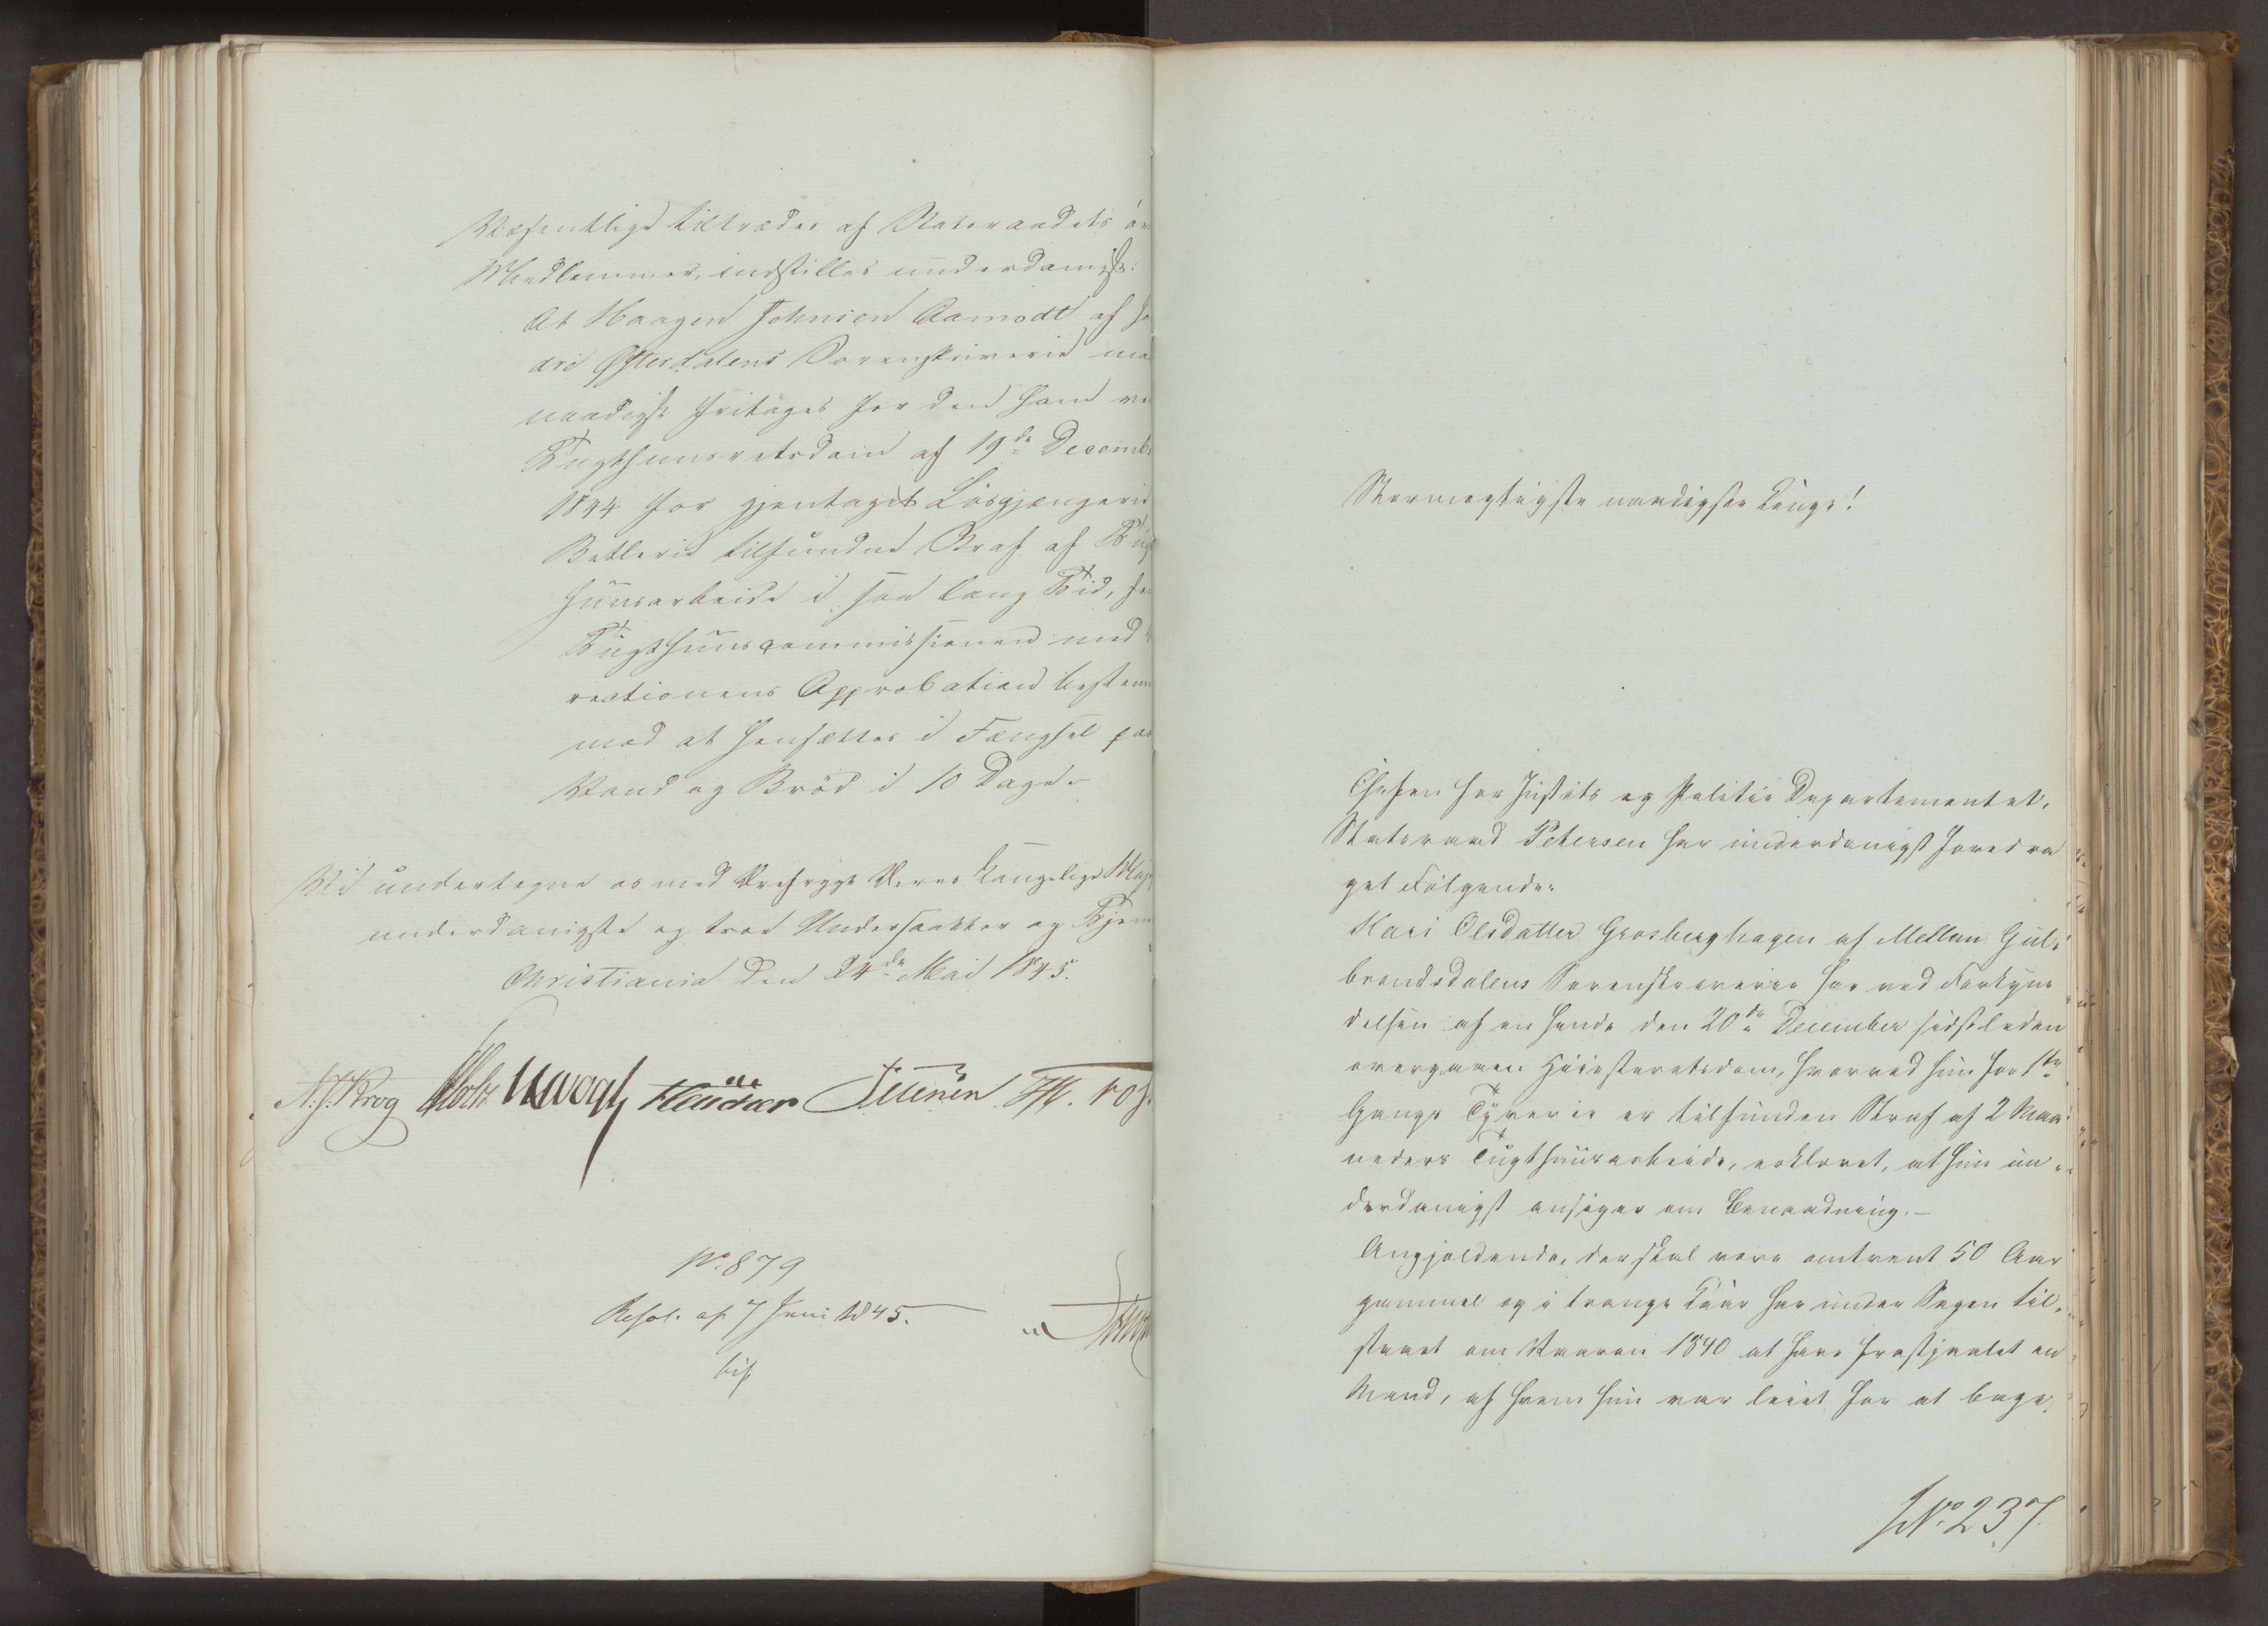 Væsentlige tiltrædes af Statsraadets öv
Medlemmer, indstilles underdanigst:
At Haagen Johnsen Aamodt af sö
dre Østerdalens Sorenskriverie maa
naadigst fritages for den ham ved
Tugthuusretsdom af 19de Decemb
1844 for gjentaget Løsgjængerie
Betlerie tilfundne Straf af Tugt
huusarbeide i saa lang Tid, som
Tugthuuscommissionen med
rectionens Approbation bestem
mod at hensættes i Fængsel paa
Vand og Bröd i 10 Dage.
Vi undertegne os med Ærefrygt Deres Kongelige Maj
underdanigste og troe Undersaatter og Tjene
Christiania den 24de Mai 1845.
N. J. Krog Holst U Vogt
No. 879
Resol. af 7 Juni 1845.
Stormægtigste naadigste Konge!
Chefen for Justits og Politie Departementet,
Statsraad Petersen har underdanigst foredra
get Fölgende:
Kari Olsdatter Grosberghagen af Mellem Gul-
brandsdalens Sorenskriverie har ved Forkyn
delsen af en hende den 20de December sidstleden
overgaaen Höiesteretsdom, hvorved hun for 1ste
Gangs Tyverie er tilfunden Straf af 2 Maa-
neders Tugthuusarbeide, erklæret, at hun un-
derdanigst ansöger om Benaadning.—
Angjeldende, der skal være omtrent 50 Aar
gammel og i trange Kaar har under Sagen til-
staaet om Vaaren 1840 at have frastjaalet en
Mand, af hvem hun var leiet for at bage
No. 237